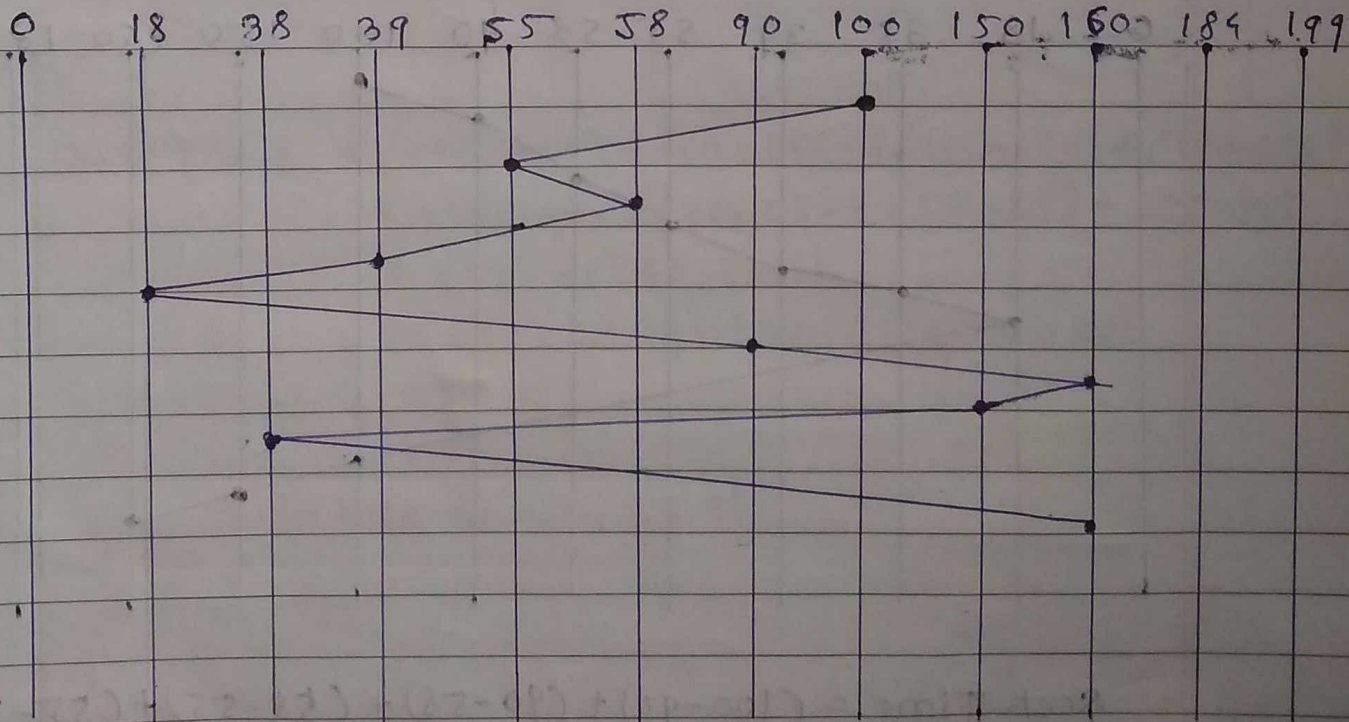 0 18 38 39 55 58 90 100 150 160 184 199